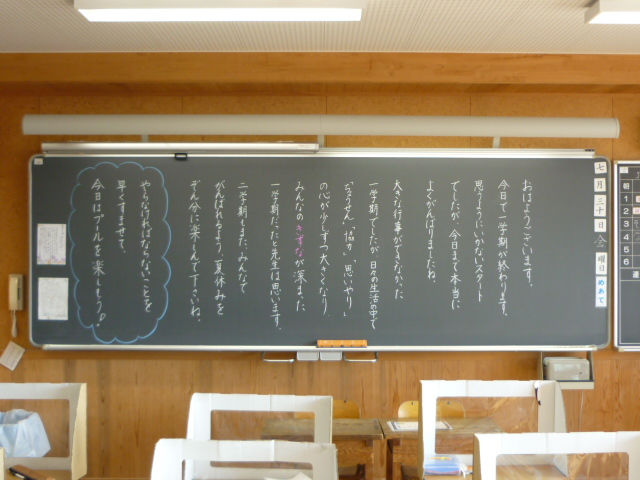 七月三十日(金)曜日
めあて
おはようございます。
今日で一学期が終わります。
思うようにいかないスタート
でしたが、今日まで本当に
よくがんばりましたね。
大きな行事ができなかった
一学期でしたが、日々の生活の中で
「ちょうせん」「協力」「思いやり」
の心が少しずつ大きくなり
みんなのきずなが深まった
一学期だったと先生は思います。
二学期もまた、みんなで
がんばれるよう、夏休みを
ぞんぶんに楽しんで下さいね。
やらなければならないことを
早くすませて、
今日はプールを楽しもう!
朝
1
2
3
4
5
6
連